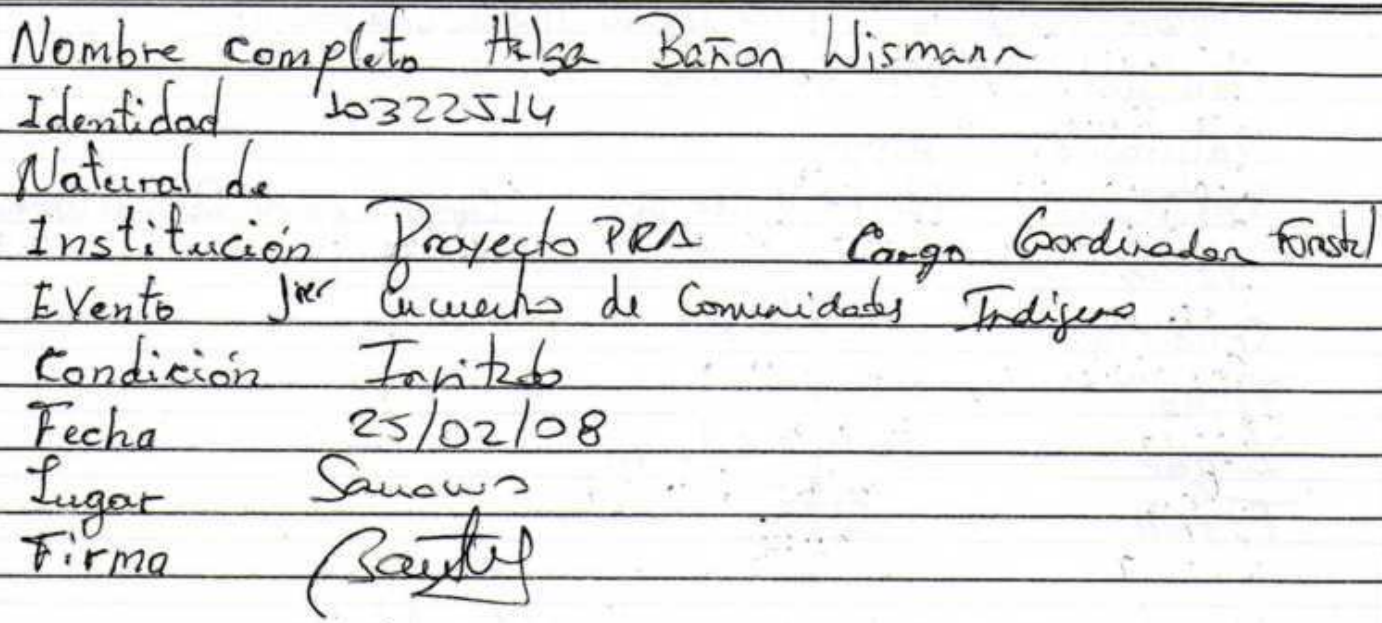 Nombre completo Helga Bañon Wismann
Identidad 10322514
Natural de
Institución Proyecto PRA Cargo Coordinador Forestal
Evento 1er Encuentro de Comunidades Indigena
Condición Invitado
Fecha 25/02/08
Lugar
Firma